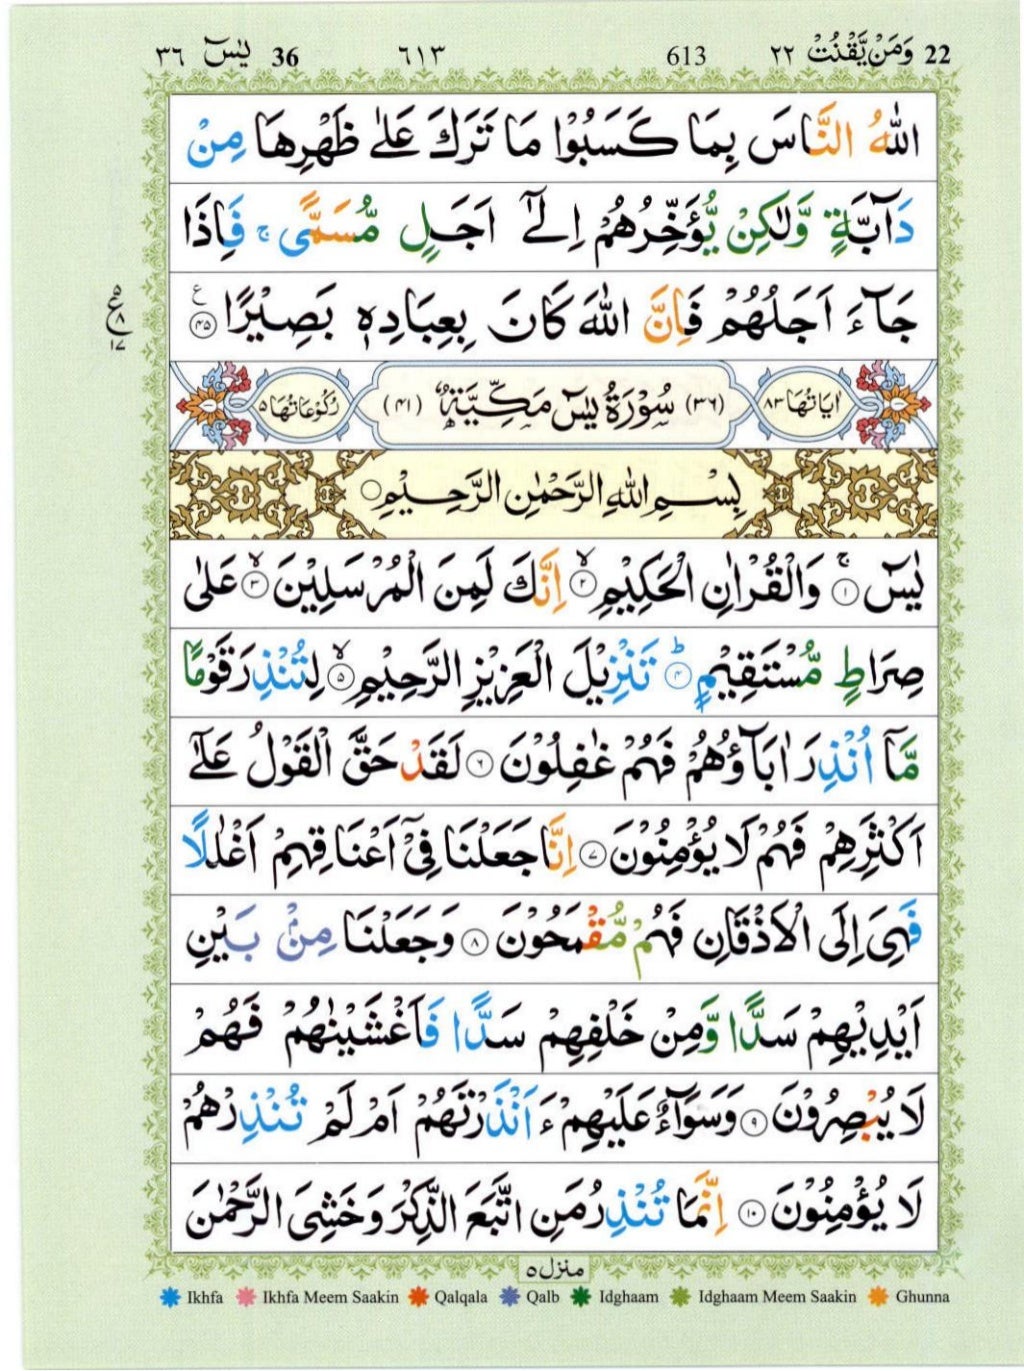 22 وَمَنْ يَّقْنُتْ ٢٢ 613 ٦١٣ 36 يٰسٓ ٣٦
اللّٰهُ النَّاسَ بِمَا كَسَبُوْا مَا تَرَكَ عَلٰى ظَهْرِهَا مِنْ
دَآبَّةٍ وَّلٰكِنْ يُّؤَخِّرُهُمْ اِلٰٓى اَجَلٍ مُّسَمًّى ۚ فَاِذَا
جَآءَ اَجَلُهُمْ فَاِنَّ اللّٰهَ كَانَ بِعِبَادِهٖ بَصِيْرًا ﴿۴۵﴾ ع
۵ ع ۸ ۱۷
اٰيَاتُهَا ٨٣ (٣٦) سُوْرَةُ يٰسٓ مَكِّيَّةٌ (٤١) رُكُوْعَاتُهَا ٥
بِسْمِ اللّٰهِ الرَّحْمٰنِ الرَّحِيْمِ
يٰسٓ ﴿۱﴾ۚ وَالْقُرْاٰنِ الْحَكِيْمِ ﴿۲﴾ۙ اِنَّكَ لَمِنَ الْمُرْسَلِيْنَ ﴿۳﴾ۙ عَلٰى
صِرَاطٍ مُّسْتَقِيْمٍ ﴿۴﴾ؕ تَنْزِيْلَ الْعَزِيْزِ الرَّحِيْمِ ﴿۵﴾ۙ لِتُنْذِرَ قَوْمًا
مَّآ اُنْذِرَ اٰبَآؤُهُمْ فَهُمْ غٰفِلُوْنَ ﴿۶﴾ لَقَدْ حَقَّ الْقَوْلُ عَلٰٓى
اَكْثَرِهِمْ فَهُمْ لَا يُؤْمِنُوْنَ ﴿۷﴾ اِنَّا جَعَلْنَا فِيْٓ اَعْنَاقِهِمْ اَغْلٰلًا
فَهِيَ اِلَى الْاَذْقَانِ فَهُمْ مُّقْمَحُوْنَ ﴿۸﴾ وَجَعَلْنَا مِنْۢ بَيْنِ
اَيْدِيْهِمْ سَدًّا وَّمِنْ خَلْفِهِمْ سَدًّا فَاَغْشَيْنٰهُمْ فَهُمْ
لَا يُبْصِرُوْنَ ﴿۹﴾ وَسَوَآءٌ عَلَيْهِمْ ءَاَنْذَرْتَهُمْ اَمْ لَمْ تُنْذِرْهُمْ
لَا يُؤْمِنُوْنَ ﴿۱۰﴾ اِنَّمَا تُنْذِرُ مَنِ اتَّبَعَ الذِّكْرَ وَخَشِيَ الرَّحْمٰنَ
منزل ٥
Ikhfa Ikhfa Meem Saakin Qalqala Qalb Idghaam Idghaam Meem Saakin Ghunna